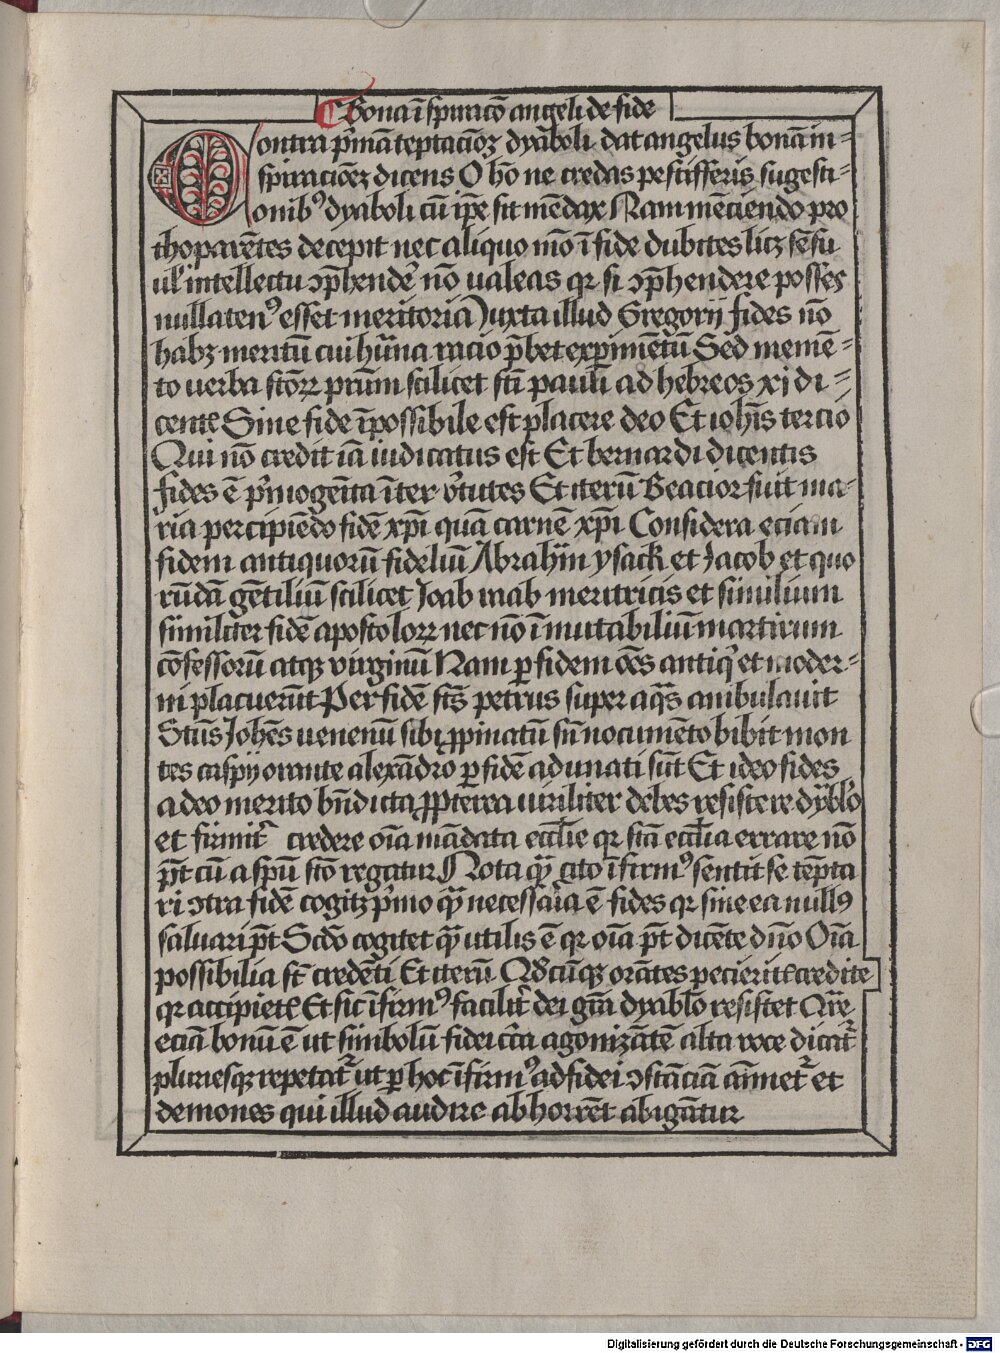 Bona īspiracō angeli de fide
Contra p̓mā teptacionꝫ dyaboli dat angelus bonā in=
spiracioꝫ dicens O hō ne credas pestifferis sugesti=
onibꝰ dyaboli cū ip̄e sit mēdax Nam mēciendo pro
thoparētes decepit nec aliquo mō ī fide dubites licꝫ sēsu
ul̓ intellectu ꝯp̄hendē nō ualeas qr si ꝯp̄hendere posses
nullatenꝰ esset meritoria Juxta illud Gregorij fides nō
habꝫ meritū cui hūana racio p̄bet exꝑimētū Sed memē=
to uerba stōꝝ prūm scilicet sti pauli ad hebreos xj di=
centꝭ Sine fide īpossibile est placere deo Et iohīs tercio
Qui nō credit iā iudicatus est Et bernardi dicentis
fides ē p̓mogeīta īter v̓tutes Et iterū Beacior fuit ma=
ria percipiēdo fidē xp̄i quā carnē xp̄i Considera eciam
fidem antiquorū fideliū Abrahām ysack et Jacob et quo
rūdā gētiliū scilicet Joab mab meritricis et similium
similiter fidē apostoloꝝ nec nō īmutabiliū martirum
cōfessorū atqꝫ virginū Nam ꝑ fidem oēs antiq̓ et moder=
ni placuerūt Per fidē stūs petrus super aq̄s ambulauit
Stūs Johēs uenenū sibi ꝓpinatū sn̄ nocumēto bibit mon
tes caspij orante alexādro ꝑ fidē adunati sūt Et ideo fides
a deo merito bn̄dicta ꝓpterea uiriliter debes resistere dyab̄lo
et firmit̓ credere oīa mādata eccl̄ie qr stā eccl̄ia errare nō
p̄t cū a sp̄u stō regatur Nota qͣ cito īfirmꝰ sentit se tēpta
ri ꝯtra fidē cogitꝫ p̓mo qͣ necessāia ē fides qr sine ea nullꝰ
saluari p̄t Scdō cogitet qͣ utilis ē qr oīa p̄t dicēte dn̄o Oīa
possibilia st̄ credēti Et iterū Qd̓cūqꝫ orātes pecieritꝭ credite
qr accipietꝭ Et sic īfirmꝰ facilit̓ dei gr̄a dyab̄lo resistet Qr̄e
eciā bonū ē ut simbolū fidei cīca agonizātē alta voce dicat̓
pluriesqꝫ repetat̓ ut ꝑ hoc īfirmꝰ ad fidei ꝯstāciā aīmet̓ et
demones qui illud audire abhorrēt abigātur
Digitalisierung gefördert durch die Deutsche Forschungsgemeinschaft - DFG